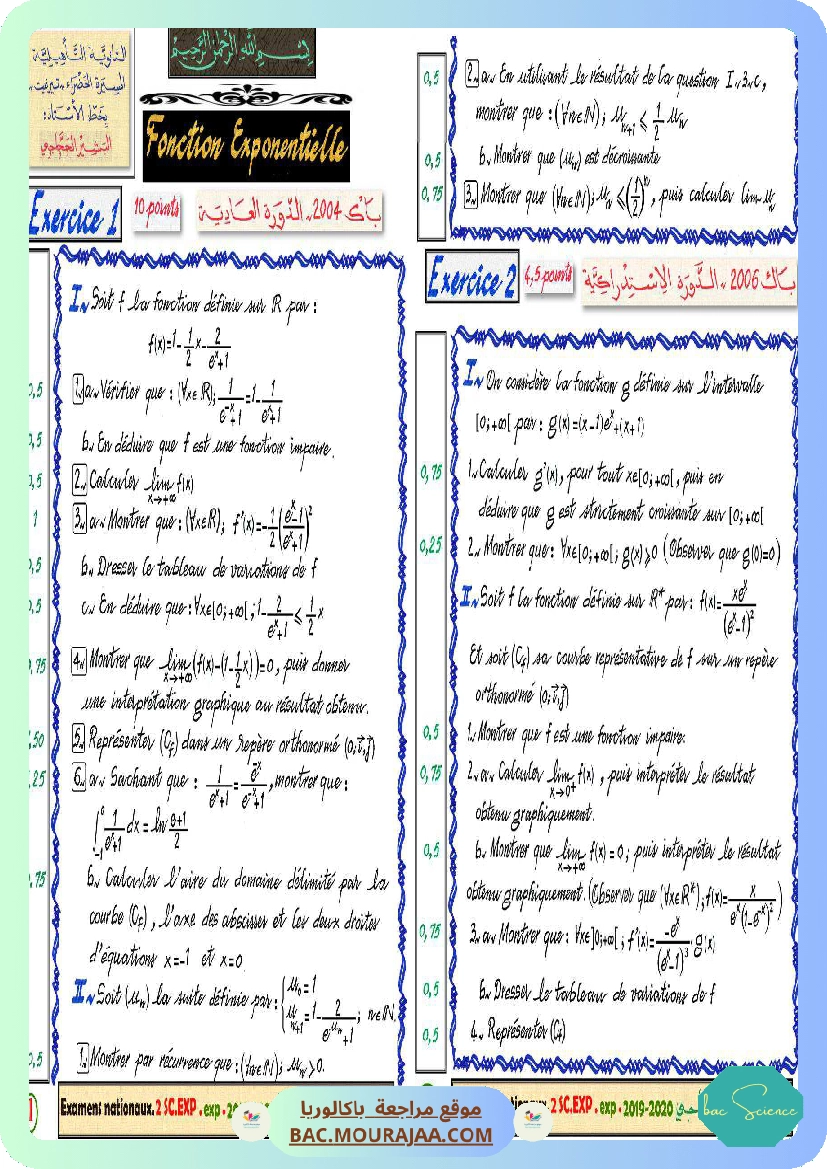 الثانوية التأهيلية
المسيرة الخضراء - تيزنيت -
بخط الأستاذ:
البشير الحجاجي
بسم الله الرحمن الرحيم
Fonction Exponentielle
Exercice 1
10 points
باك 2004 - الدورة العادية
I~ Soit f la fonction définie sur ℝ par :
f(x)=1-\frac{1}{2}x-\frac{2}{e^x+1}
0,5 1~a~ Vérifier que : (∀x∈ℝ); \frac{1}{e^{-x}+1}=1-\frac{1}{e^x+1}
0,5 b~ En déduire que f est une fonction impaire.
0,5 2~ Calculer lim_{x→+∞} f(x)
1 3~ a~ Montrer que : (∀x∈ℝ); f'(x)=-\frac{1}{2}(\frac{e^x-1}{e^x+1})^2
0,5 b~ Dresser le tableau de variations de f
0,5 c~ En déduire que : ∀x∈[0;+∞[ ; 1-\frac{2}{e^x+1} ≤ \frac{1}{2}x
0,75 4~ Montrer que lim_{x→+∞}(f(x)-(1-\frac{1}{2}x))=0, puis donner
une interprétation graphique au résultat obtenu.
,50 5~ Représenter (C_f) dans un repère orthonormé (o;i⃗,j⃗)
,25 6~ a~ Sachant que : \frac{1}{e^x+1}=\frac{e^{-x}}{e^{-x}+1}, montrer que :
∫_{-1}^{0} \frac{1}{e^x+1}dx = ln \frac{e+1}{2}
,75 b~ Calculer l'aire du domaine délimité par la
courbe (C_f), l'axe des abscisses et les deux droites
d'équations x=-1 et x=0
II~ Soit (u_n) la suite définie par : { u_0=1
u_{n+1}=1-\frac{2}{e^{u_n}+1} ; n∈ℕ.
0,5 1~ Montrer par récurrence que : (∀n∈ℕ); u_n>0.
0,5 2~ a~ En utilisant le résultat de la question I~3~c,
montrer que : (∀n∈ℕ); u_{n+1} ≤ \frac{1}{2}u_n
0,5 b~ Montrer que (u_n) est décroissante
0,75 3~ Montrer que (∀n∈ℕ); u_n ≤ (\frac{1}{2})^n, puis calculer lim u_n
Exercice 2
4,5 points
باك 2006 - الدورة الاستدراكية
I~ On considère la fonction g définie sur l'intervalle
[0;+∞[ par : g(x)=(x-1)e^x+(x+1)
0,75 1~ Calculer g'(x), pour tout x∈[0;+∞[, puis en
déduire que g est strictement croissante sur [0;+∞[
0,25 2~ Montrer que : ∀x∈[0;+∞[; g(x)≥0 (Observer que g(0)=0)
II~ Soit f la fonction définie sur ℝ* par : f(x)=\frac{xe^x}{(e^x-1)^2}
Et soit (C_f) sa courbe représentative de f sur un repère
orthonormé (o;i⃗,j⃗)
0,5 1~ Montrer que f est une fonction impaire.
0,75 2~ a~ Calculer lim_{x→0^+} f(x), puis interpréter le résultat
obtenu graphiquement.
0,5 b~ Montrer que lim_{x→+∞} f(x)=0; puis interpréter le résultat
obtenu graphiquement. (Observer que (∀x∈ℝ*); f(x)=\frac{x}{e^x(1-e^{-x})^2})
0,75 3~ a~ Montrer que : ∀x∈]0;+∞[ ; f'(x)=\frac{-e^x}{(e^x-1)^3}.g(x)
0,5 b~ Dresser le tableau de variations de f
0,5 4~ Représenter (C_f)
Examens nationaux. 2 SC.EXP
موقع مراجعة باكالوريا
BAC.MOURAJAA.COM
2 SC.EXP . exp - 2019-2020
bac Science